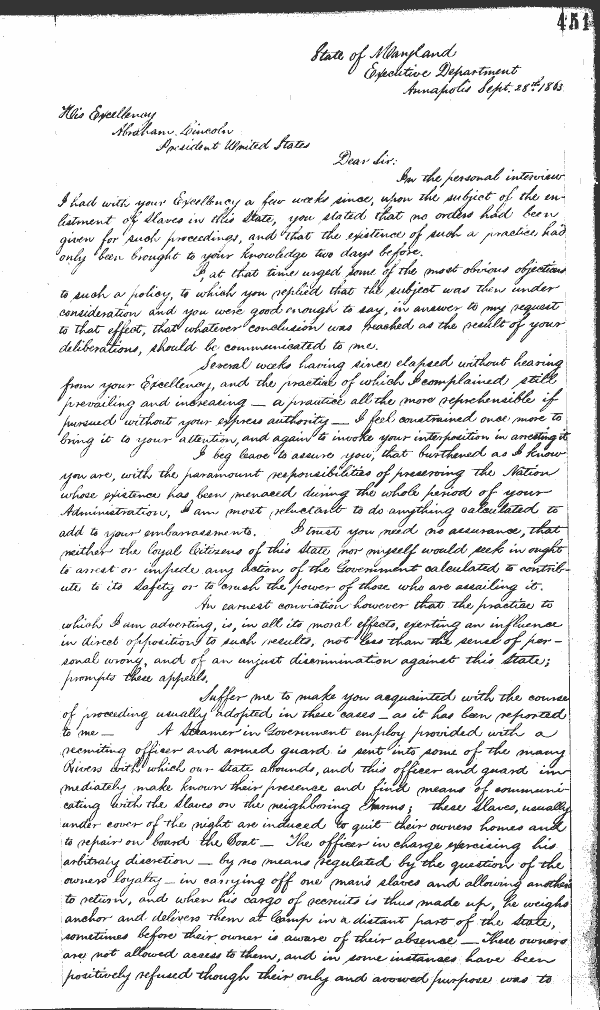 451
State of Maryland
Executive Department
Annapolis Sept. 28th 1863
His Excellency
Abraham Lincoln
President United States
Dear Sir:
In the personal interview
I had with your Excellency a few weeks since, upon the subject of the en-
listment of slaves in this State, you stated that no orders had been
given for such proceedings, and that the existence of such a practice had
only been brought to your knowledge two days before.
I, at that time urged some of the most obvious objections
to such a policy, to which you replied that the subject was then under
consideration and you were good enough to say, in answer to my request
to that effect, that whatever conclusion was reached as the result of your
deliberations, should be communicated to me.
Several weeks having since elapsed without hearing
from your Excellency, and the practice of which I complained still
prevailing and increasing — a practice all the more reprehensible if
pursued without your express authority — I feel constrained once more to
bring it to your attention, and again to invoke your interposition in arresting it
I beg leave to assure you, that burthened as I know
you are, with the paramount responsibilities of preserving the Nation
whose existence has been menaced during the whole period of your
Administration, I am most reluctant to do anything calculated to
add to your embarrassments. I trust you need no assurance, that
neither the loyal Citizens of this State nor myself would seek in ought
to arrest or impede any action of the Government calculated to contrib-
ute to its safety or to crush the power of those who are assailing it.
An earnest conviction however that the practise to
which I am adverting, is, in all its moral effects, exerting an influence
in direct opposition to such results, not less than the sense of per-
sonal wrong, and of an unjust discrimination against this State;
prompts these appeals.
Suffer me to make you acquainted with the course
of proceeding usually adopted in these cases — as it has been reported
to me — A Steamer in Government employ provided with a
recruiting officer and armed guard is sent into some of the many
Rivers with which our State abounds, and this officer and guard im-
mediately make known their presence and find means of communi-
cating with the slaves on the neighboring Farms; these slaves, usually
under cover of the night are induced to quit their owners homes and
to repair on board the Boat — The officer in charge exercising his
arbitrary discretion — by no means regulated by the question of the
owners loyalty — in carrying off one man's slaves and allowing anothers
to return, and when his cargo of recruits is thus made up, he weighs
anchor and delivers them at Camp in a distant part of the State,
sometimes before their owner is aware of their absence — These owners
are not allowed access to them, and in some instances have been
positively refused though their only and avowed purpose was to